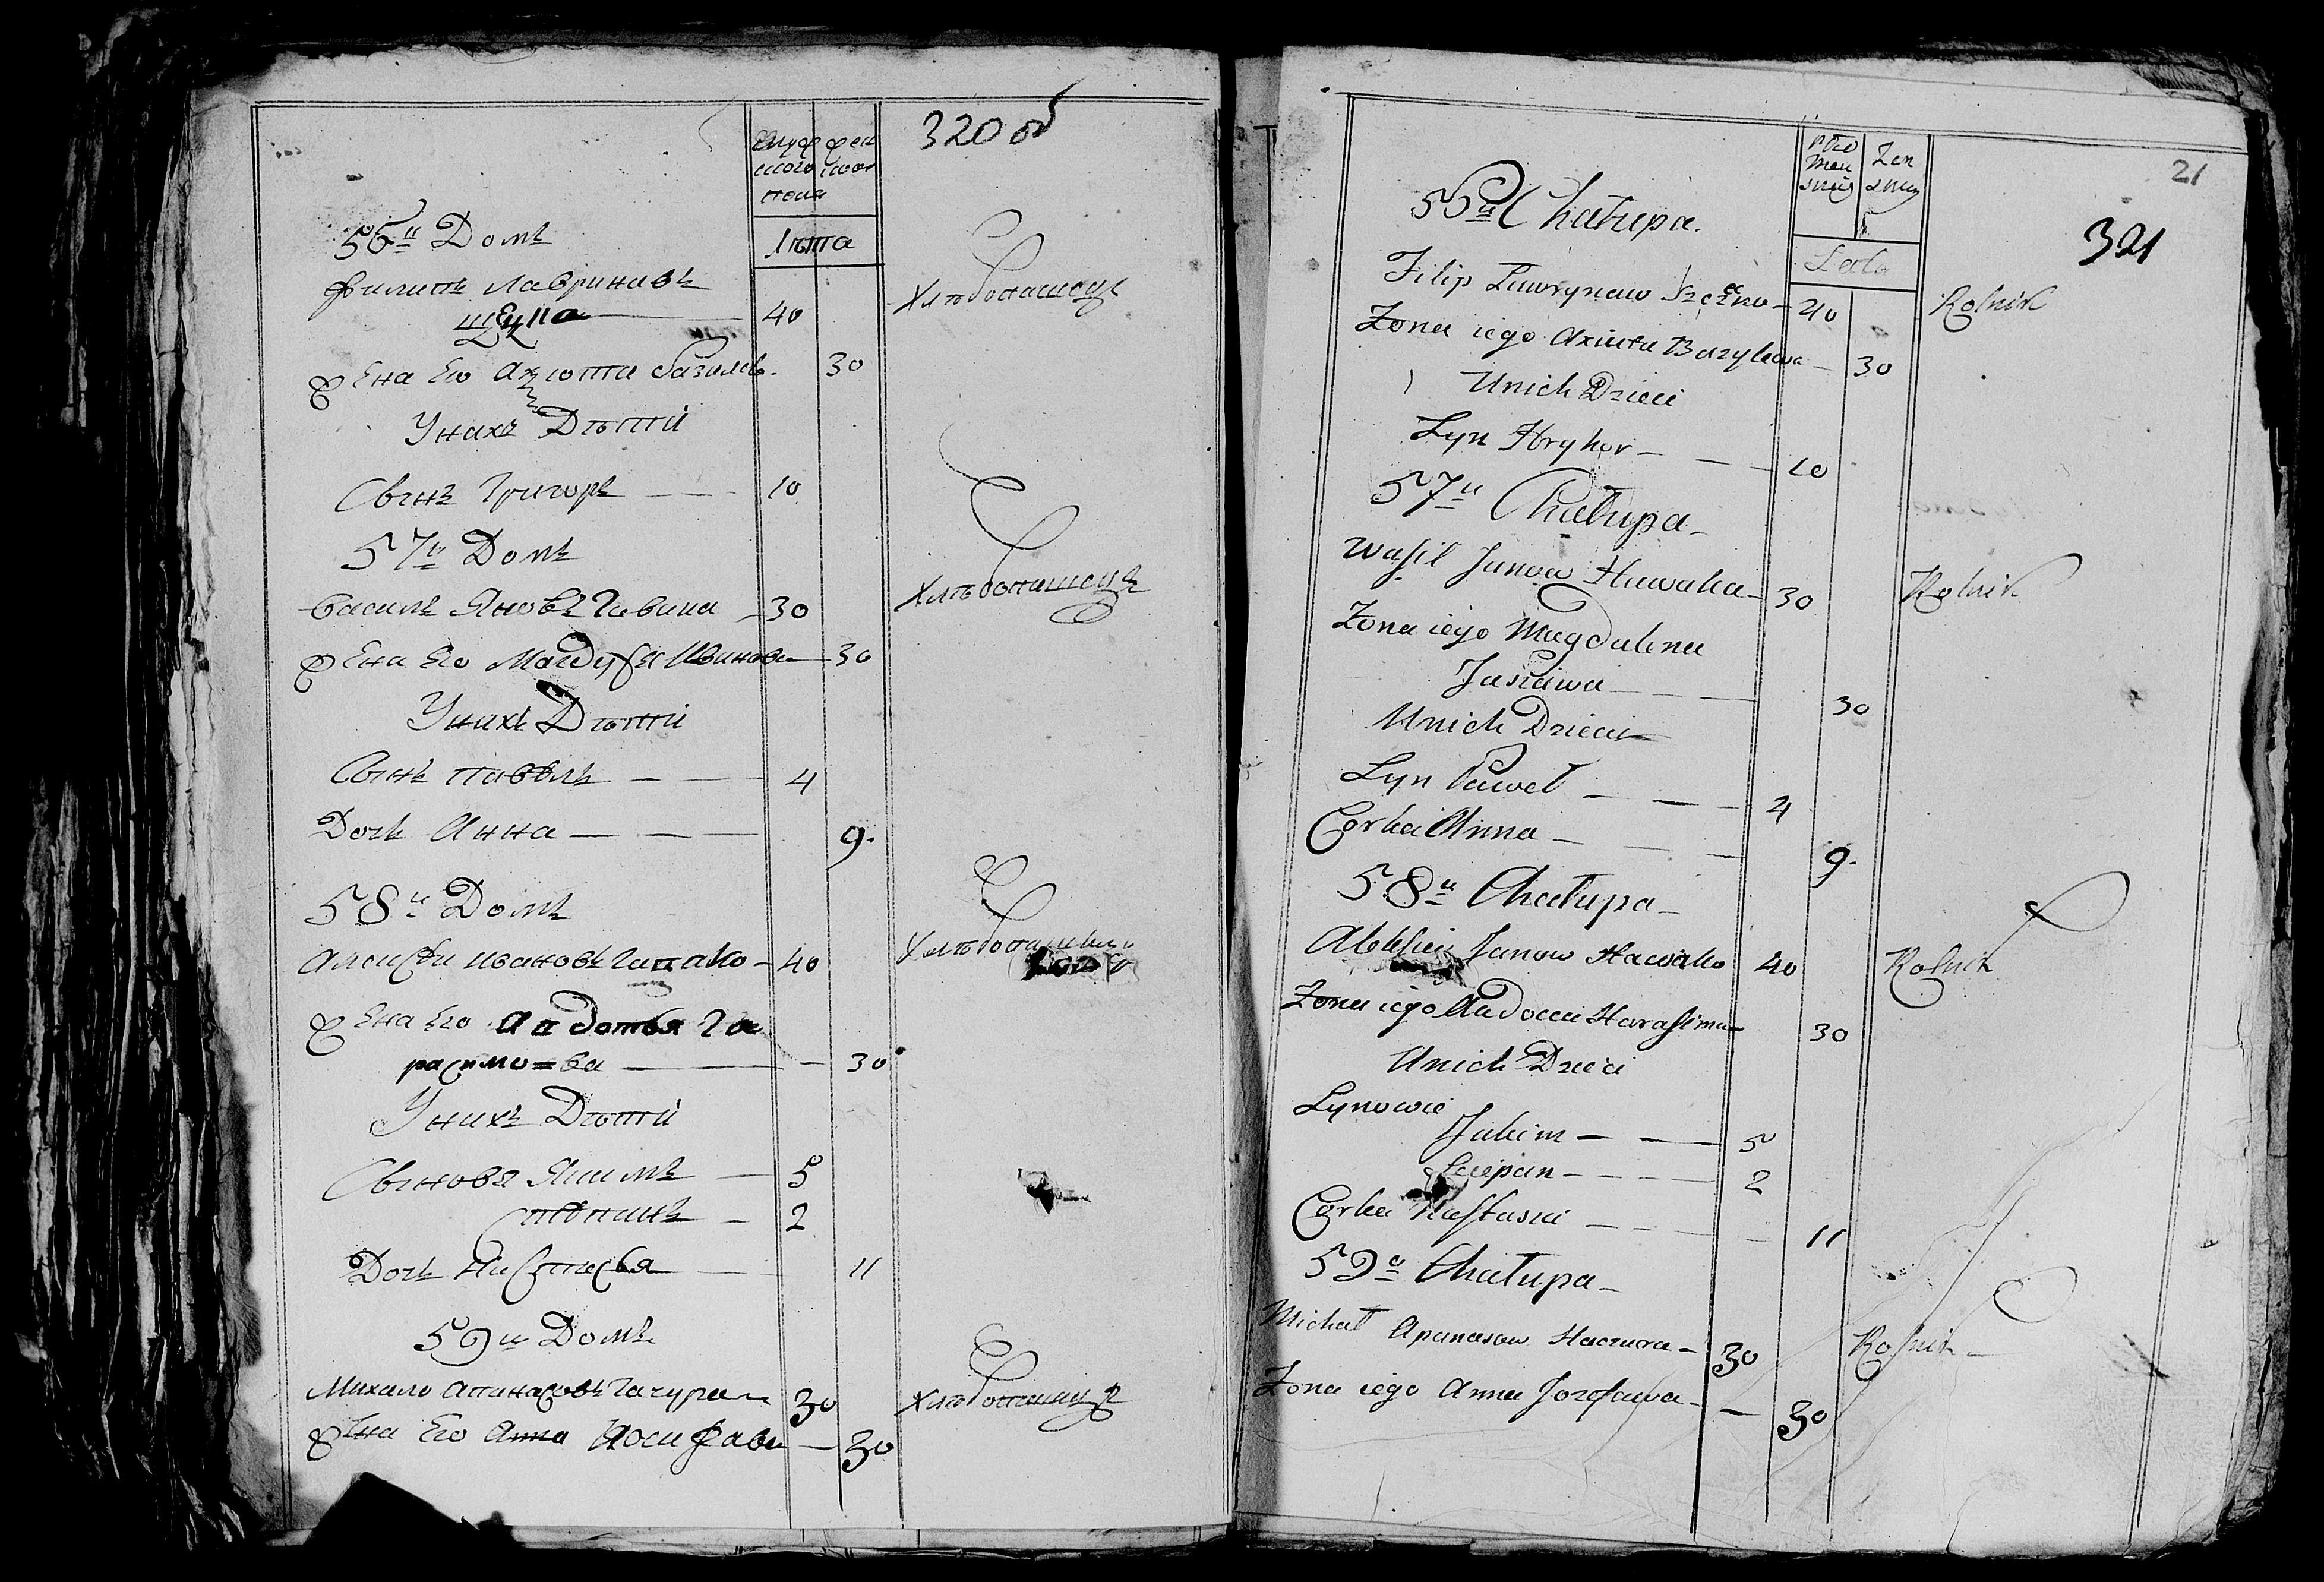 320 об
Муж ен
ского ског
пола
Лѣта
56й Домъ
Филипъ Лавриновъ
40
Хлѣбопашецъ
Жена Его Аксюта Базылев. 30
У нихъ Дѣтй
Сынъ Григоръ — — 10
57й Домъ
Василь Яновъ Гавака — 30
Хлѣбопашецъ
Жена Его Магдуся Иванова — 30
У нихъ Дѣтй
Сынъ Павелъ — — 4
Дочь Анна — — — 9.
58й Домъ
Алексѣй Ивановъ Гавако — 40
Хлѣбопашецъ
Жена Его Авдотья Га
расимо=ва — — 30
У нихъ Дѣтй
Сыновя Якимъ — 5
Стѣпанъ — 2
Дочь Настасья — — 11
59й Домъ
Михало Апанасовъ Гачура — 30
Хлѣбопашецъ
Жена Его Анна Иосифава — 30
21
321
Płci
Mę
skiej
Żen
skiey
Lata
56a Chałupa.
Filip Ławrynaw — 40
Rolnik
Zona iego Axiuta Bazylewa — 30
Unich Dzieci
Syn Hryhor — — — 10
57a Chałupa —
Wasil Janow Hawaka — 30
Rolnik
Zona iego Magdalena
Jasiawa — — — 30
Unich Dzieci
Syn Paweł — — — 4
Corka Anna — — — 9.
58a Chałupa —
Alekſiey Janow Hawako 40
Rolnik
Zona iego Audocia Haraſima— 30
Unich Dzieci
Synowie
Jakim — — — 5
Sciepan — — — 2
Corka Naſtasia — — — 11
59a Chałupa —
Michał Apanasow Haczura — 30
Rolnik —
Zona iego Anna Jozefawa — — 30